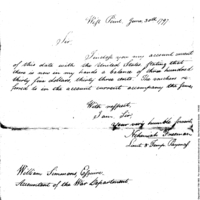 West Point, June 30th 1797
Sir,
I enclose you my account current
of this date with the United States stating that
there is now in my hands a balance of three hundred
thirty five dollars, thirty cents. The vouchers re-
fered to in the account current accompany the same,
With respect,
I am Sir,
your very humble servant
Nehemiah Freeman
Lieut & Paymaster
William Simmons Esquire
Accountant of the War Department